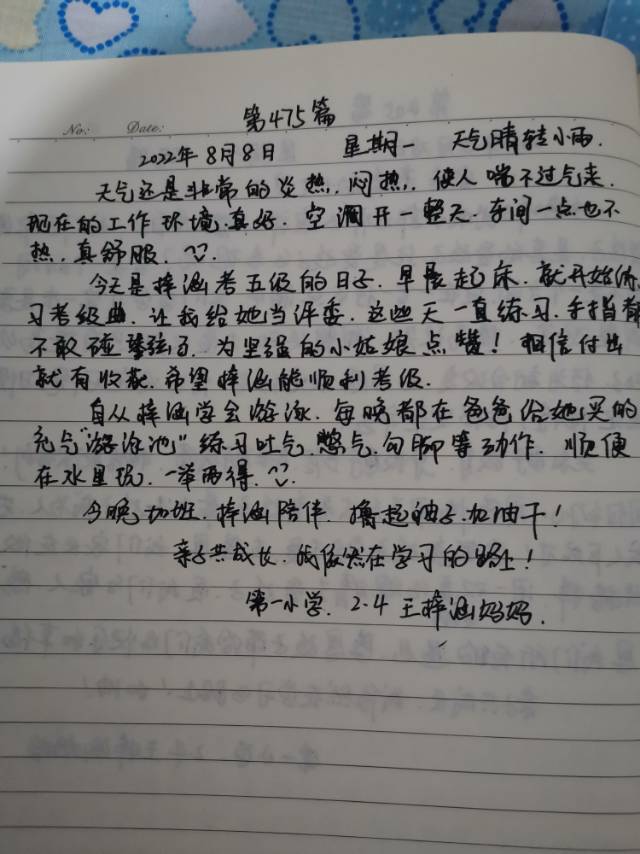 第475篇
No: Date:
2022年8月8日 星期一 天气晴转小雨.
天气还是非常的炎热,闷热,使人喘不过气来.
现在的工作环境真好.空调开一整天.车间一点也不
热,真舒服.
今天是梓涵考五级的日子.早晨起床.就开始练
习考级曲.让我给她当评委.这些天一直练习.手指都
不敢碰琴弦了.为坚强的小姑娘点赞!相信付出
就有收获.希望梓涵能顺利考级.
自从梓涵学会游泳.每晚都在爸爸给她买的
充气“游泳池”练习吐气.憋气.勾脚等动作.顺便
在水里玩.一举两得.
今晚加班.梓涵陪伴.撸起袖子加油干!
亲子共成长.我依然在学习的路上!
第一小学.2.4王梓涵妈妈.